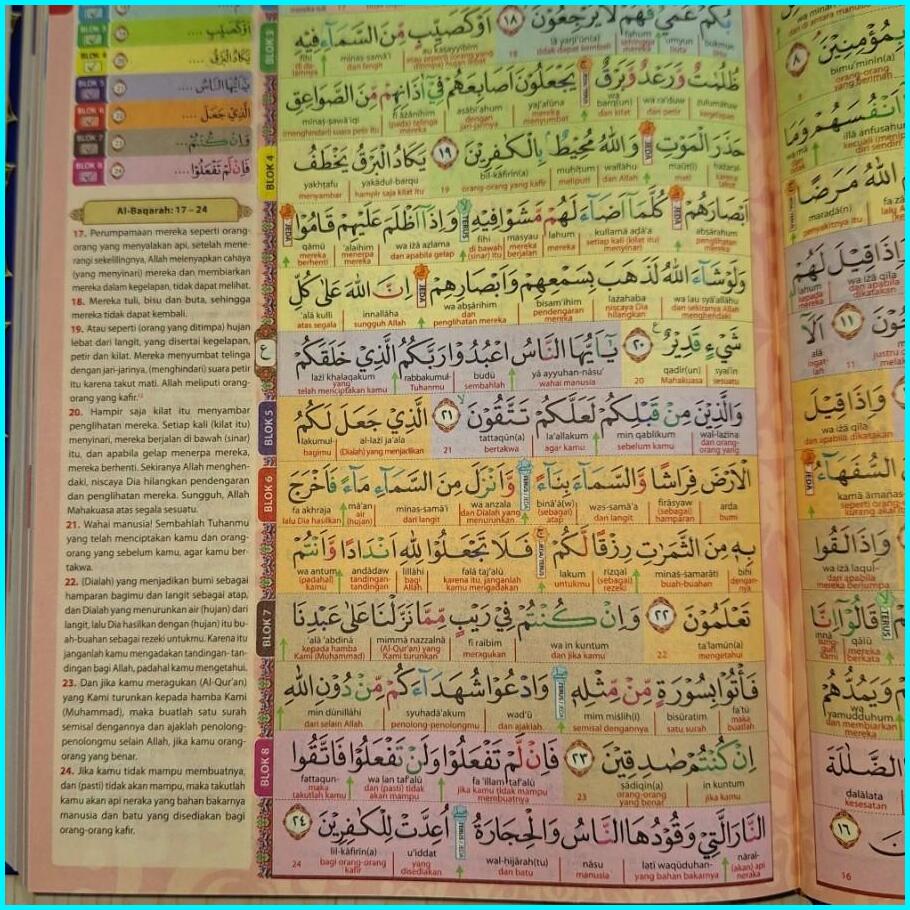 بُكْمٌ عُمْيٌ فَهُمْ لَا يَرْجِعُوْنَ ١٨ اَوْ كَصَيِّبٍ مِّنَ السَّمَاۤءِ فِيْهِ
lā yarji'ūn(a) fahum 'umyun
18 tidak dapat kembali sehingga mereka buta
fīhi minas-samā'i au kaṣayyibim
di dalamnya dari langit
ظُلُمٰتٌ وَّرَعْدٌ وَّبَرْقٌ يَجْعَلُوْنَ اَصَابِعَهُمْ فِيْٓ اٰذَانِهِمْ مِّنَ الصَّوَاعِقِ
minaṣ-ṣawā'iqi fī āżānihim aṣābi'ahum yaj'alūna wa barq(un) wa ra'duw ẓulumātuw
(menghindari) suara petir itu (pada) telinga mereka dengan jari-jarinya mereka menyumbat dan kilat dan petir kegelapan
حَذَرَ الْمَوْتِ وَاللّٰهُ مُحِيْطٌۢ بِالْكٰفِرِيْنَ ١٩ يَكَادُ الْبَرْقُ يَخْطَفُ
yakhṭafu yakādul-barqu bil-kāfirīn(a) muḥīṭum wallāhu maūt(i) ḥażaral-
menyambar hampir saja kilat itu 19 orang-orang yang kafir meliputi dan Allah mati karena takut
اَبْصَارَهُمْ كُلَّمَآ اَضَاۤءَ لَهُمْ مَّشَوْا فِيْهِ وَاِذَآ اَظْلَمَ عَلَيْهِمْ قَامُوْا
qāmū 'alaihim wa iżā aẓlama fīhi masyau lahum kullamā aḍā'a abṣārahum
mereka berhenti menerpa mereka dan apabila gelap di bawah (sinar) itu mereka berjalan mereka setiap kali (kilat itu) menyinari penglihatan mereka
وَلَوْ شَاۤءَ اللّٰهُ لَذَهَبَ بِسَمْعِهِمْ وَاَبْصَارِهِمْ اِنَّ اللّٰهَ عَلٰى كُلِّ
'alā kulli innallāha wa abṣārihim bisam'ihim lażahaba wa lau syā'allāhu
atas segala sungguh Allah dan penglihatan mereka pendengaran mereka niscaya Dia hilangkan dan sekiranya Allah menghendaki
شَيْءٍ قَدِيْرٌ ٢٠ يٰٓاَيُّهَا النَّاسُ اعْبُدُوْا رَبَّكُمُ الَّذِيْ خَلَقَكُمْ
lażī khalaqakum rabbakumul- budū yā ayyuhan-nāsu' qadīr(un) syai'in
yang telah menciptakan kamu Tuhanmu sembahlah wahai manusia 20 Mahakuasa sesuatu
وَالَّذِيْنَ مِنْ قَبْلِكُمْ لَعَلَّكُمْ تَتَّقُوْنَ ٢١ الَّذِيْ جَعَلَ لَكُمُ
lakumul- al-lażī ja'ala tattaqūn(a) la'allakum min qablikum wal-lażīna
bagimu (Dialah) yang menjadikan 21 bertakwa agar kamu sebelum kamu dan orang-orang yang
الْاَرْضَ فِرَاشًا وَّالسَّمَاۤءَ بِنَاۤءً وَّاَنْزَلَ مِنَ السَّمَاۤءِ مَاۤءً فَاَخْرَجَ
fa akhraja mā'an minas-samā'i wa anzala binā'a(w) was-samā'a firāsyaw arḍa
lalu Dia hasilkan air (hujan) dari langit dan Dialah yang menurunkan (sebagai) atap dan langit (sebagai) hamparan bumi
بِهٖ مِنَ الثَّمَرٰتِ رِزْقًا لَّكُمْ فَلَا تَجْعَلُوْا لِلّٰهِ اَنْدَادًا وَّاَنْتُمْ
wa antum andādaw lillāhi falā taj'alū lakum rizqal minaṡ-ṡamarāti bihī
(padahal) kamu tandingan-tandingan bagi Allah karena itu, janganlah kamu mengadakan untukmu (sebagai) rezeki buah-buahan dengannya
تَعْلَمُوْنَ ٢٢ وَاِنْ كُنْتُمْ فِيْ رَيْبٍ مِّمَّا نَزَّلْنَا عَلٰى عَبْدِنَا
'alā 'abdinā mimmā nazzalnā fī raibim wa in kuntum ta'lamūn(a)
kepada hamba Kami (Muhammad) (Al-Qur'an) yang Kami turunkan meragukan dan jika kamu 22 mengetahui
فَأْتُوْا بِسُوْرَةٍ مِّنْ مِّثْلِهٖ وَادْعُوْا شُهَدَاۤءَكُمْ مِّنْ دُوْنِ اللّٰهِ
min dūnillāhi syuhadā'akum wad'ū mim miṡlih(ī) bisūratim fa'tū
dari selain Allah penolong-penolongmu dan ajaklah semisal dengannya satu surah maka buatlah
اِنْ كُنْتُمْ صٰدِقِيْنَ ٢٣ فَاِنْ لَّمْ تَفْعَلُوْا وَلَنْ تَفْعَلُوْا فَاتَّقُوا
fattaqun- wa lan taf'alū fa'illam taf'alū ṣādiqīn(a) in kuntum
maka takutlah kamu dan (pasti) tidak akan mampu jika kamu tidak mampu membuatnya 23 orang-orang yang benar jika kamu
النَّارَ الَّتِيْ وَقُوْدُهَا النَّاسُ وَالْحِجَارَةُ اُعِدَّتْ لِلْكٰفِرِيْنَ ٢٤
lil-kāfirīn(a) u'iddat wal-ḥijārah(tu) nāsu latī waqūduhan- nāral-
24 bagi orang-orang kafir yang disediakan dan batu manusia yang bahan bakarnya (akan) api neraka
BLOK 3
BLOK 4
BLOK 5
BLOK 6
BLOK 7
BLOK 8
اَوْ كَصَيِّبٍ ....
يَكَادُ الْبَرْقُ ....
يٰٓاَيُّهَا النَّاسُ ....
الَّذِيْ جَعَلَ ....
وَاِنْ كُنْتُمْ ....
فَاِنْ لَّمْ تَفْعَلُوْا ....
Al-Baqarah: 17 – 24
17. Perumpamaan mereka seperti orang-
orang yang menyalakan api, setelah mene-
rangi sekelilingnya, Allah melenyapkan cahaya
(yang menyinari) mereka dan membiarkan
mereka dalam kegelapan, tidak dapat melihat.
18. Mereka tuli, bisu dan buta, sehingga
mereka tidak dapat kembali.
19. Atau seperti (orang yang ditimpa) hujan
lebat dari langit, yang disertai kegelapan,
petir dan kilat. Mereka menyumbat telinga
dengan jari-jarinya, (menghindari) suara petir
itu karena takut mati. Allah meliputi orang-
orang yang kafir.
20. Hampir saja kilat itu menyambar
penglihatan mereka. Setiap kali (kilat itu)
menyinari, mereka berjalan di bawah (sinar)
itu, dan apabila gelap menerpa mereka,
mereka berhenti. Sekiranya Allah menghen-
daki, niscaya Dia hilangkan pendengaran
dan penglihatan mereka. Sungguh, Allah
Mahakuasa atas segala sesuatu.
21. Wahai manusia! Sembahlah Tuhanmu
yang telah menciptakan kamu dan orang-
orang yang sebelum kamu, agar kamu ber-
takwa.
22. (Dialah) yang menjadikan bumi sebagai
hamparan bagimu dan langit sebagai atap,
dan Dialah yang menurunkan air (hujan) dari
langit, lalu Dia hasilkan dengan (hujan) itu bu-
ah-buahan sebagai rezeki untukmu. Karena itu
janganlah kamu mengadakan tandingan-tan-
dingan bagi Allah, padahal kamu mengetahui.
23. Dan jika kamu meragukan (Al-Qur'an)
yang Kami turunkan kepada hamba Kami
(Muhammad), maka buatlah satu surah
semisal dengannya dan ajaklah penolong-
penolongmu selain Allah, jika kamu orang-
orang yang benar.
24. Jika kamu tidak mampu membuatnya,
dan (pasti) tidak akan mampu, maka takutlah
kamu akan api neraka yang bahan bakarnya
manusia dan batu yang disediakan bagi
orang-orang kafir.